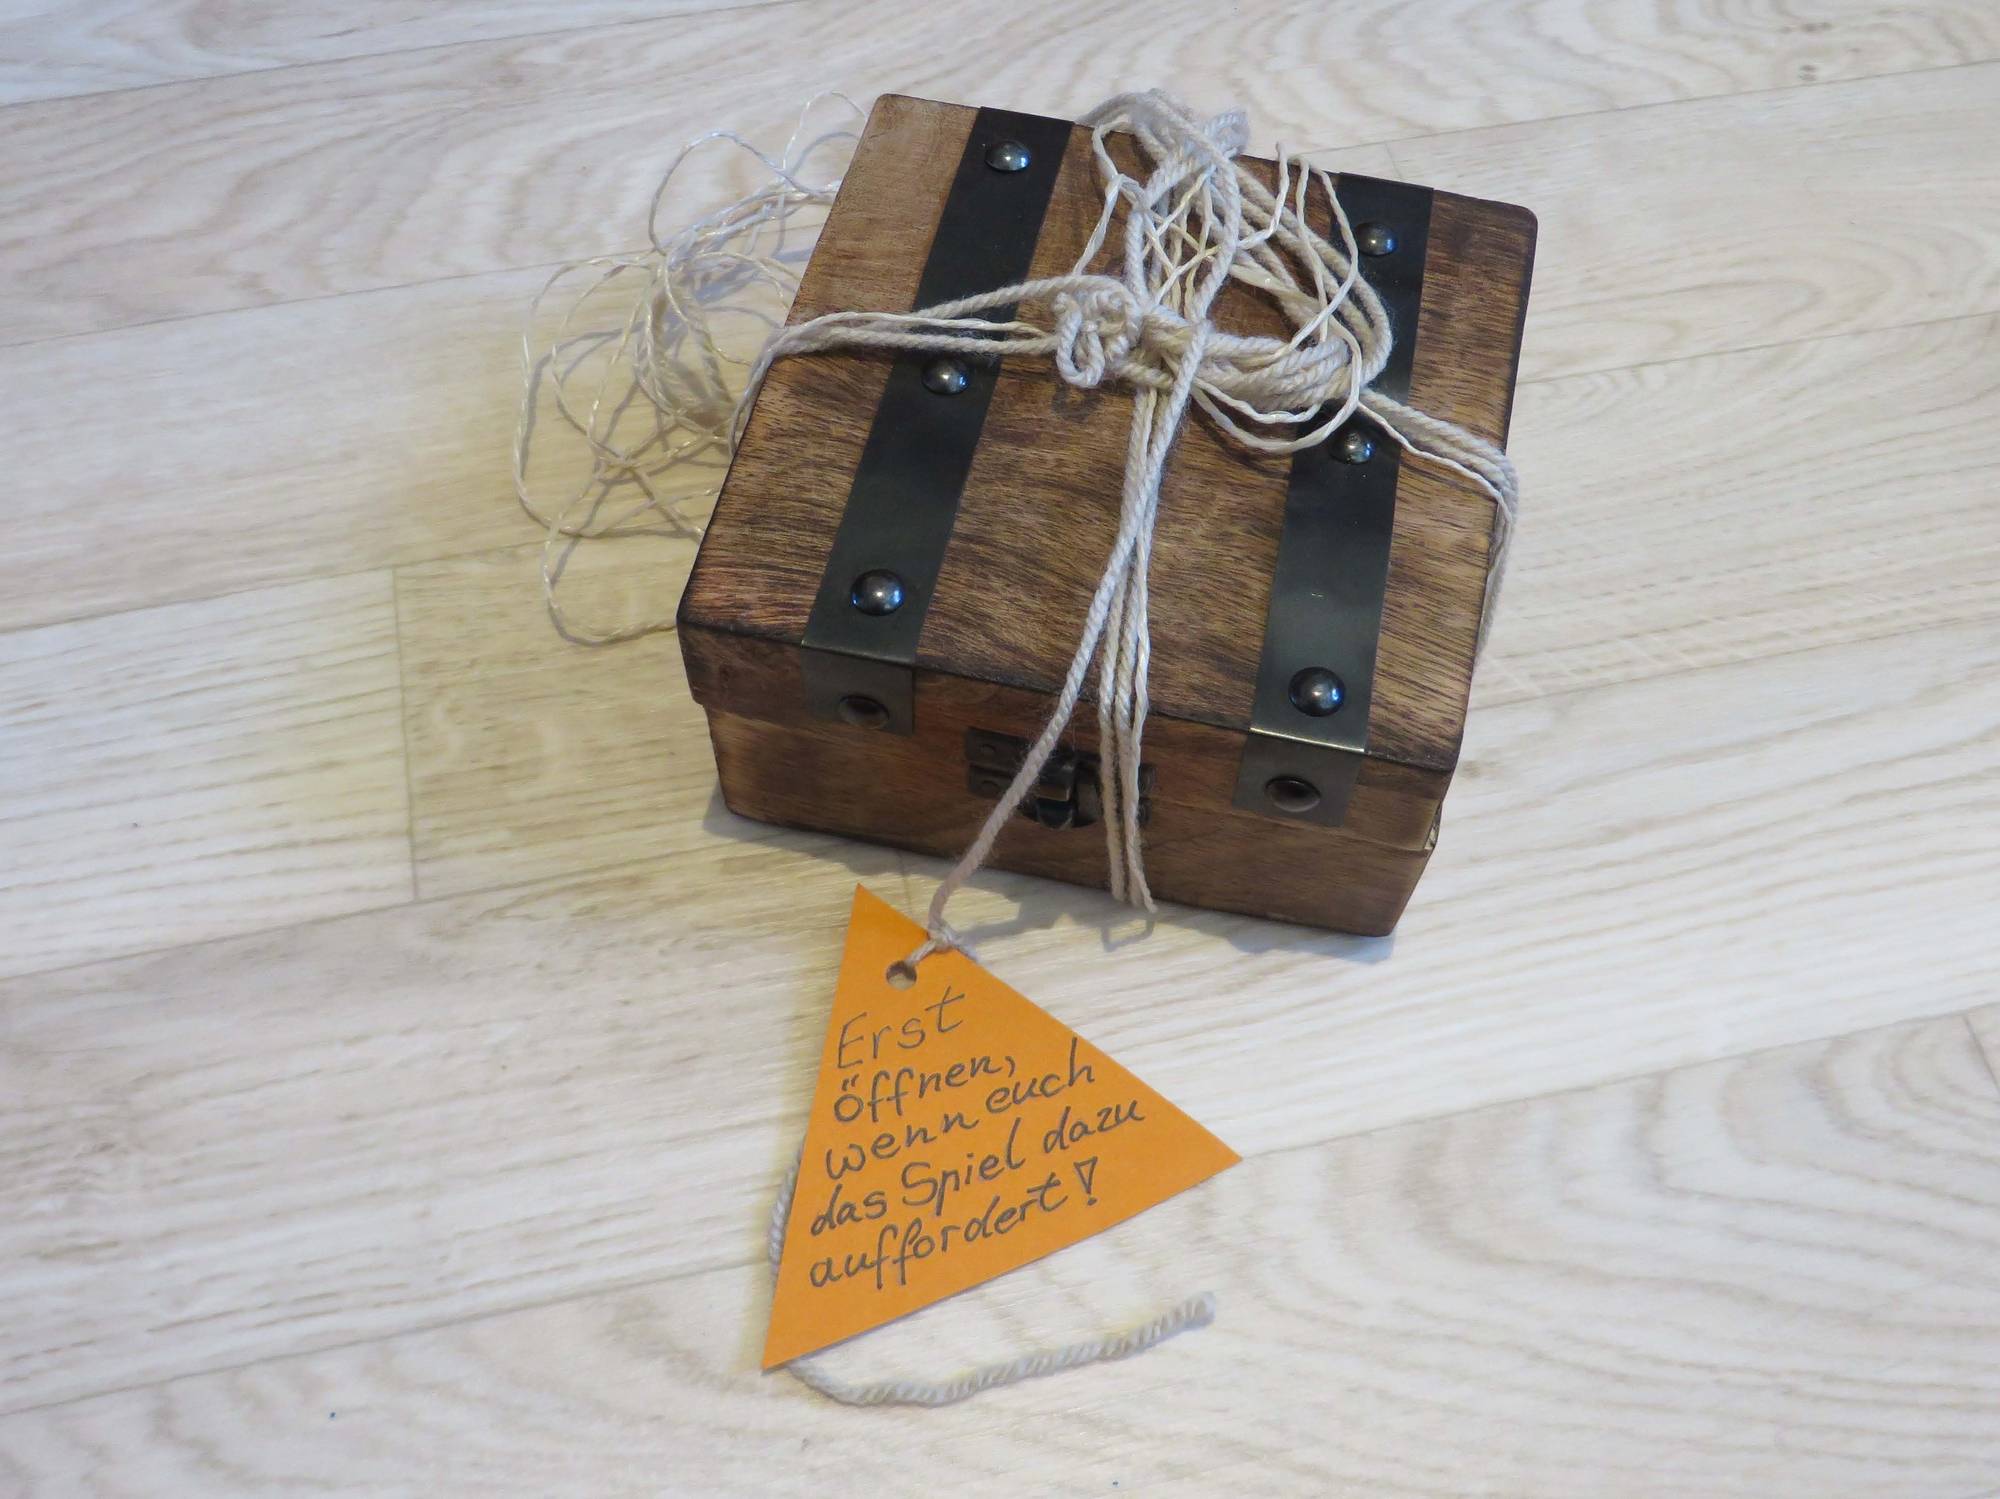 Erst
öffnen,
wenn euch
das Spiel dazu
auffordert!